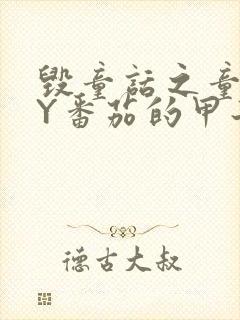 毁童话之童
Y番茄的甲
德古大叔